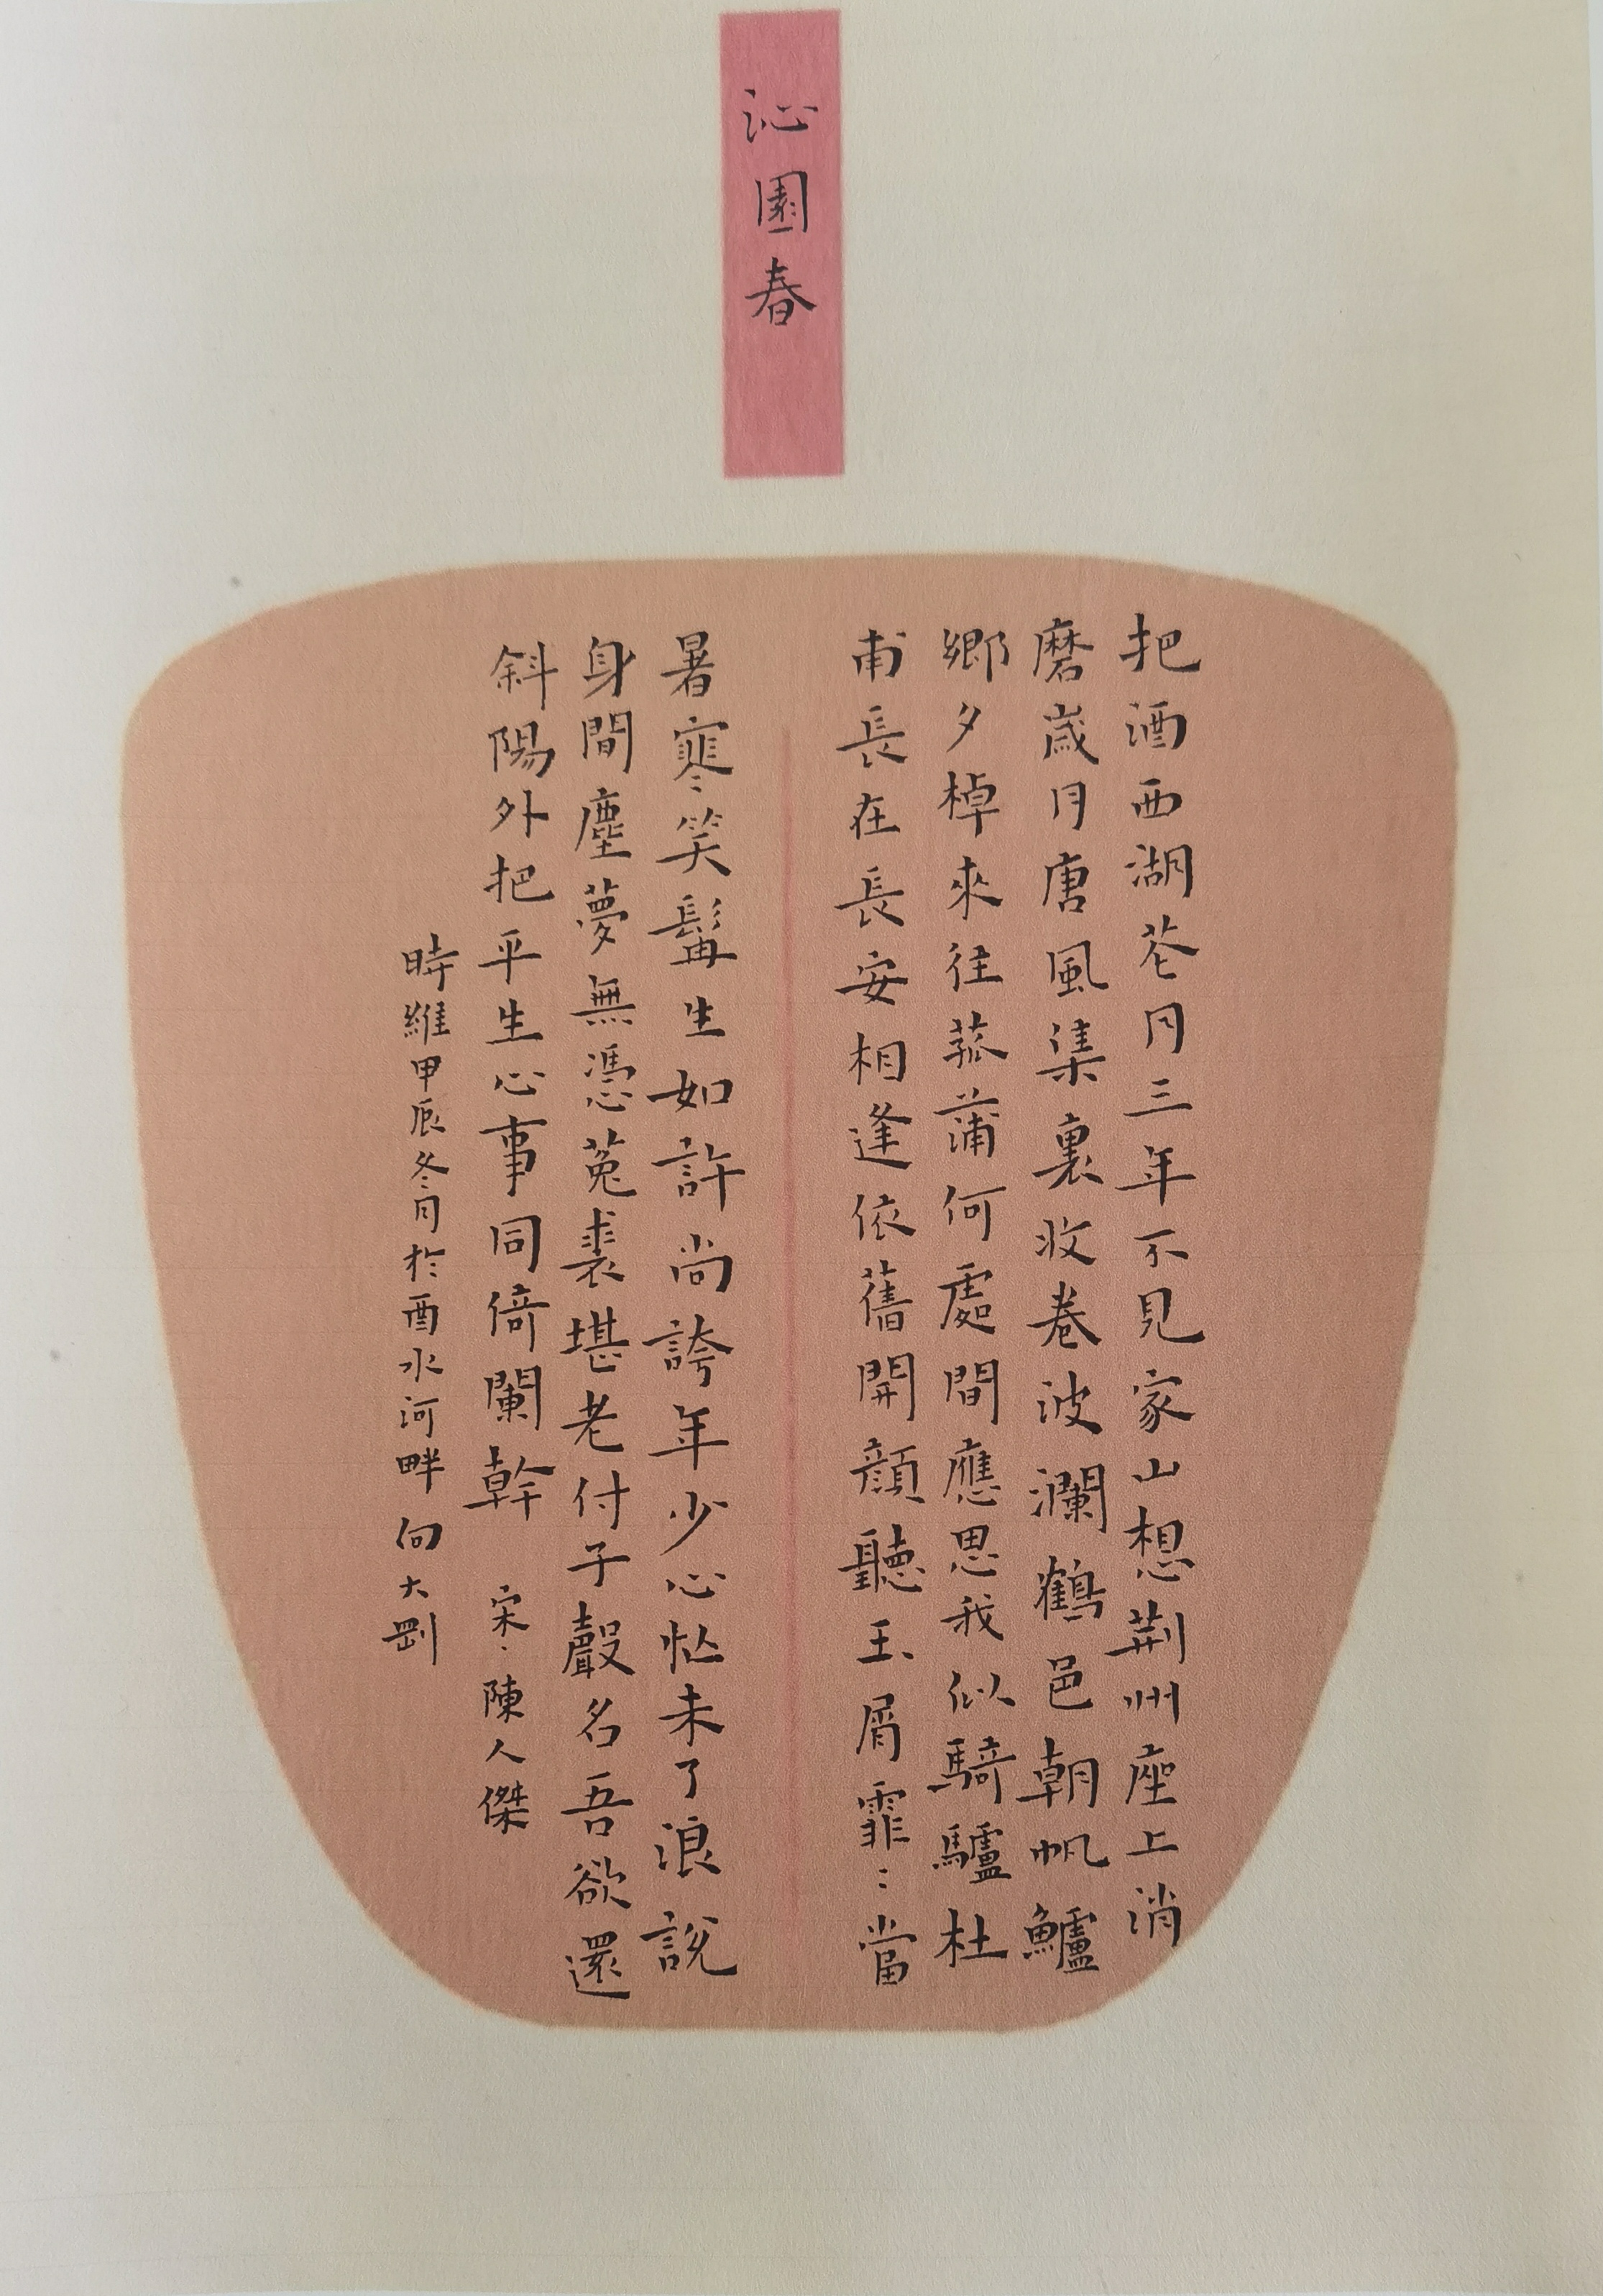 沁園春
把酒西湖花月三年不見家山想荆州座上消
磨歲月唐風集裏收卷波瀾鶴邑朝帆鱸
鄉夕棹來往菰蒲何處間應思我似騎驢杜
甫長在長安相逢依舊開顔聽玉屑霏〻當
暑寒笑髯生如許尚誇年少心怯未了浪說
身間塵夢無憑菟裘堪老付子聲名吾欲還
斜陽外把平生心事同倚闌幹 宋、陳人傑
時維甲辰冬月於酉水河畔向大剛